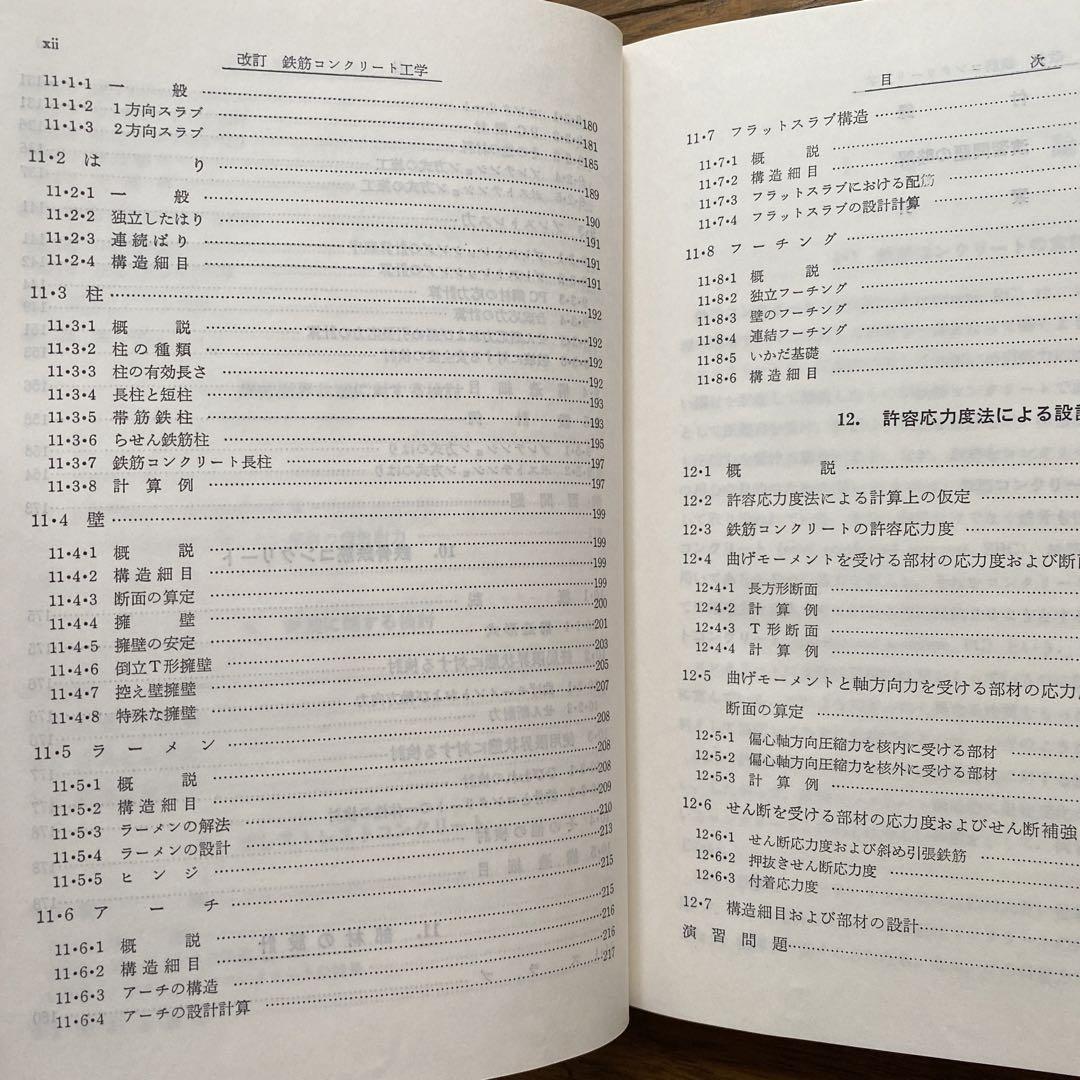 xii
改訂 鉄筋コンクリート工学
11・1・1 一般
11・1・2 1方向スラブ……180
11・1・3 2方向スラブ……181
185
11・2 はり……189
11・2・1 一般……190
11・2・2 独立したはり……191
11・2・3 連続ばり……191
11・2・4 構造細目……191
11・3 柱……192
11・3・1 概説……192
11・3・2 柱の種類……192
11・3・3 柱の有効長さ……192
11・3・4 長柱と短柱……193
11・3・5 帯筋鉄柱……193
11・3・6 らせん鉄筋柱……195
11・3・7 鉄筋コンクリート長柱……197
11・3・8 計算例……197
11・4 壁……199
11・4・1 概説……199
11・4・2 構造細目……199
11・4・3 断面の算定……199
11・4・4 擁壁……200
11・4・5 擁壁の安定……201
11・4・6 倒立T形擁壁……203
11・4・7 控え壁擁壁……205
11・4・8 特殊な擁壁……207
11・5 ラーメン……208
11・5・1 概説……208
11・5・2 構造細目……208
11・5・3 ラーメンの解法……209
11・5・4 ラーメンの設計……210
11・5・5 ヒンジ……213
11・6 アーチ……215
11・6・1 概説……215
11・6・2 構造細目……216
11・6・3 アーチの構造……216
11・6・4 アーチの設計計算……217
目次
11・7 フラットスラブ構造
11・7・1 概説
11・7・2 構造細目
11・7・3 フラットスラブにおける配筋
11・7・4 フラットスラブの設計計算
11・8 フーチング
11・8・1 概説
11・8・2 独立フーチング
11・8・3 壁のフーチング
11・8・4 連結フーチング
11・8・5 いかだ基礎
11・8・6 構造細目
12. 許容応力度法による設
12・1 概説
12・2 許容応力度法による計算上の仮定
12・3 鉄筋コンクリートの許容応力度
12・4 曲げモーメントを受ける部材の応力度および断面
12・4・1 長方形断面
12・4・2 計算例
12・4・3 T形断面
12・4・4 計算例
12・5 曲げモーメントと軸方向力を受ける部材の応力度
断面の算定
12・5・1 偏心軸方向圧縮力を核内に受ける部材
12・5・2 偏心軸方向圧縮力を核外に受ける部材
12・5・3 計算例
12・6 せん断を受ける部材の応力度およびせん断補強
12・6・1 せん断応力度および斜め引張鉄筋
12・6・2 押抜きせん断応力度
12・6・3 付着応力度
12・7 構造細目および部材の設計
演習問題